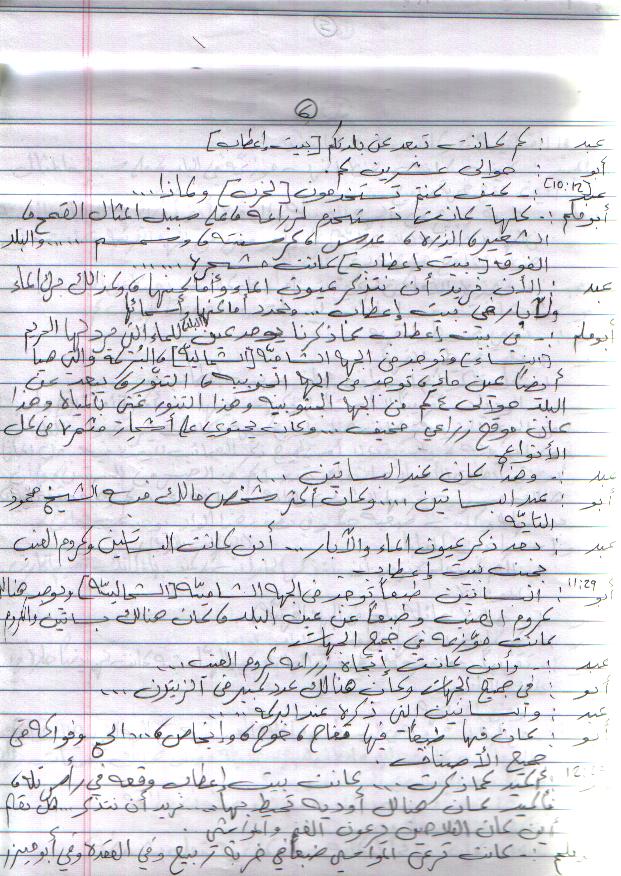 ٦
عبد : كم كانت تبعد عن بلدتكم [بيت إعطاب]
أبو : حوالي عشرين كم.
عبد [10:12] :- كيف كنتم تستخدمون [الخرب] ولماذا...
أبو ملح :- كلها كانت تستخدم لزراعة فعلى سبيل المثال القمح و
الشعير و الذرة و عدس و كرسنة و سمسم ..... والبلد
الفوقه [بيت إعطاب] كانت مشجرة .....
عبد : الآن نريد أن نتذكر عيون الماء وأماكنها وكذلك الماء
والآبار في بيت إعطاب... وتحدد أماكنها أسمائها
أبو ملح :- في بيت إعطاب كما ذكرنا يوجد عين البلد للماء التي
(البساتين) وتوجد من الجهة الشامية [الشمالية] و البركة والتي هنا
أيضاً عين ماء و توجد من الجهة الجنوبية و التنور و تبعد عن
البلد حوالي ٤ كم من الجهة الجنوبية وهذا التنور غني بالمياه وهذا
كان موقع زراعي خفيف ... وكانت يحتوي على أشجار مثمرة من كل
الأنواع
عبد :- وهذا كان عند البساتين ...
أبو : عند البساتين .... وكان أكثر شخص مالك فيه الشيخ محمود
عبد : بعد ذكر عيون الماء والآبار ... أين كانت البساتين وكروم العنب
بيت إعطاب
11:29
أبو : البساتين طبعاً توجد في الجهة الشامية [الشمالية] ويوجد هنالك
كروم العنب وطبعاً عن عين البلد و كان هنالك بساتين والكروم
كانت موزعة في جميع الجهات
عبد :- وأين كانت إتجاه زراعة كروم العنب ...
أبو : في جميع الجهات وكان هنالك عدد كبير من الزيتون ...
عبد :- والبساتين التي ذكرة عند البركة ...
أبو :- كان فيها طبعاً فيها تفاح و خوخ و وانجاص و ... الخ وفواكه من
جميع الأصناف.
أكيد كما ذكرت ... كانت بيت إعطاب وقعه في رأس تلة و
فأكيد كان هنالك أودية تحيط بها. نريد أن نتذكر ...
أين كان الفلاحين يرعون الغنم والمواشي.
:- كانت ترعى المواشي طبعاً في خربة تربيع وفي العقده وفي أبو ميزر